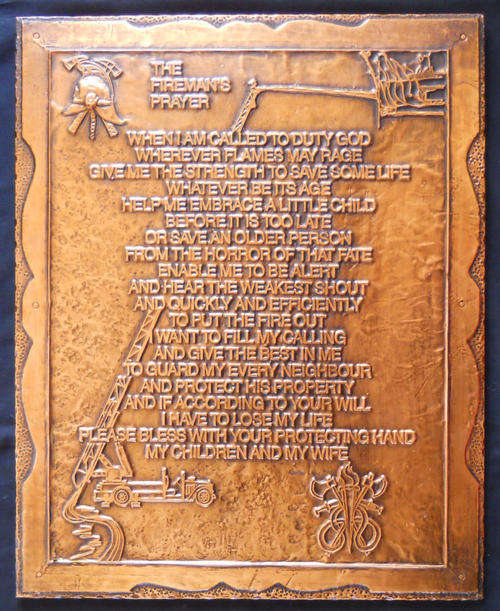 THE
FIREMAN'S
PRAYER
WHEN I AM CALLED TO DUTY GOD
WHEREVER FLAMES MAY RAGE
GIVE ME THE STRENGTH TO SAVE SOME LIFE
WHATEVER BE ITS AGE
HELP ME EMBRACE A LITTLE CHILD
BEFORE IT IS TOO LATE
OR SAVE AN OLDER PERSON
FROM THE HORROR OF THAT FATE
ENABLE ME TO BE ALERT
AND HEAR THE WEAKEST SHOUT
AND QUICKLY AND EFFICIENTLY
TO PUT THE FIRE OUT
I WANT TO FILL MY CALLING
AND GIVE THE BEST IN ME
TO GUARD MY EVERY NEIGHBOUR
AND PROTECT HIS PROPERTY
AND IF ACCORDING TO YOUR WILL
I HAVE TO LOSE MY LIFE
PLEASE BLESS WITH YOUR PROTECTING HAND
MY CHILDREN AND MY WIFE